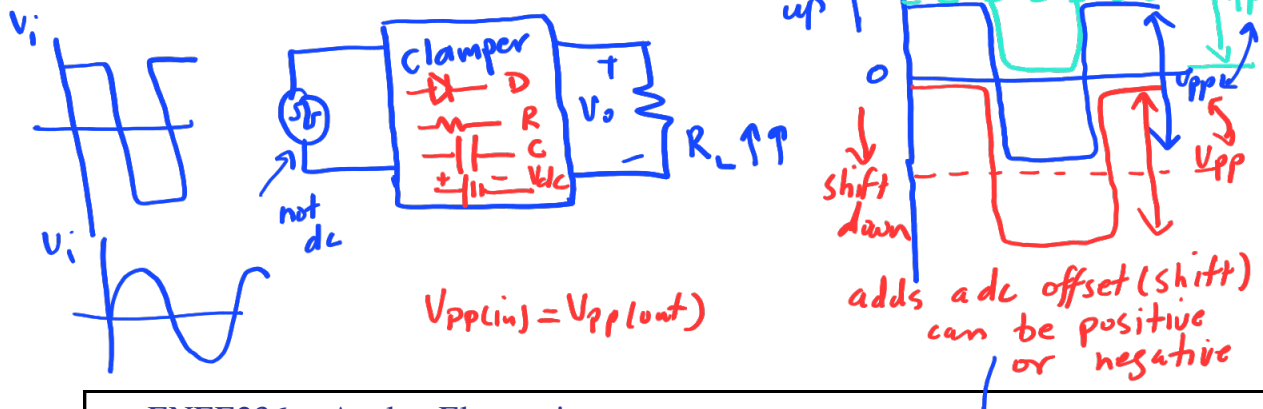 Vi
Vi
not
dc
Clamper
D
R
C
+ - Vdc
+
Vo
-
RL ↑↑
VPP(in) = VPP(out)
up
0
shift
down
VPP
VPP
adds a dc offset (shift)
can be positive
or negative